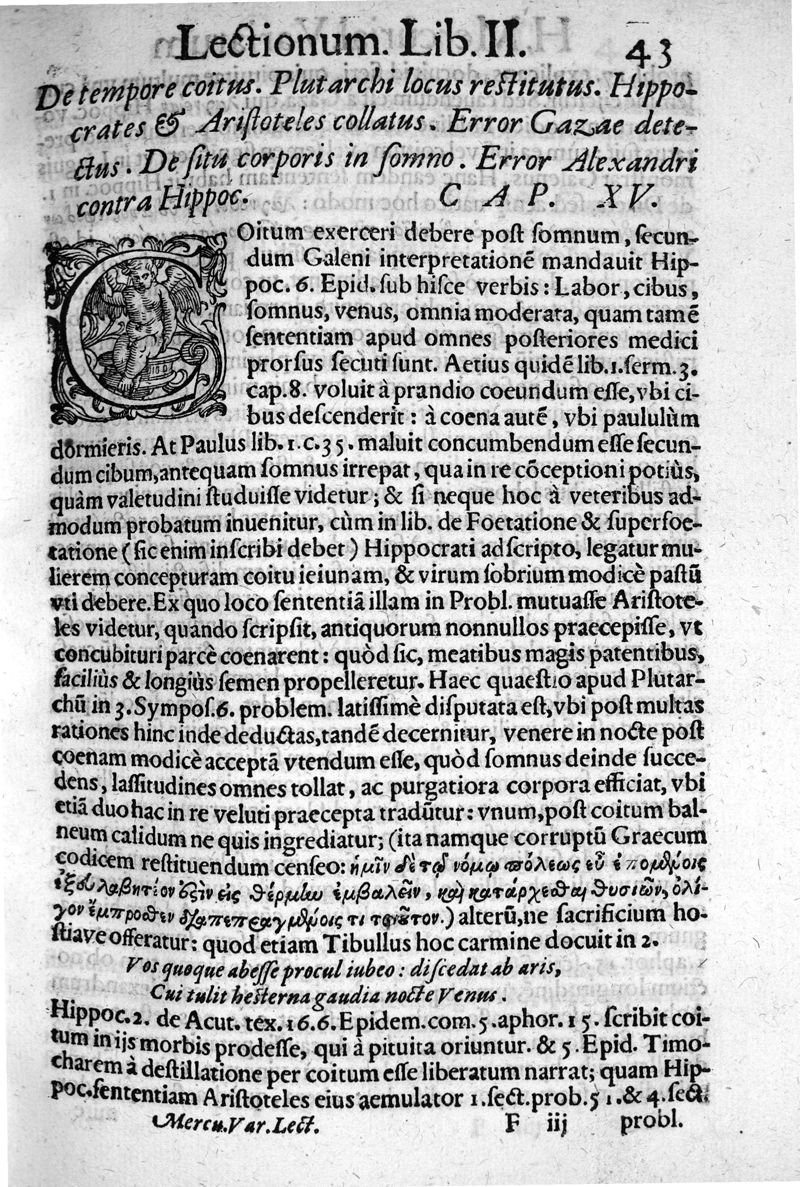 Lectionum. Lib. II. 43
De tempore coitus. Plutarchi locus restitutus. Hippo-
crates & Aristoteles collatus. Error Gazae dete-
ctus. De situ corporis in somno. Error Alexandri
contra Hippoc. CAP. XV.
COitum exerceri debere post somnum, secun-
dum Galeni interpretationẽ mandauit Hip-
poc. 6. Epid. sub hisce verbis: Labor, cibus,
somnus, venus, omnia moderata, quam tamẽ
sententiam apud omnes posteriores medici
prorsus secuti sunt. Aetius quidẽ lib. 1. serm. 3.
cap. 8. voluit à prandio coeundum esse, vbi ci-
bus descenderit: à coena autẽ, vbi paululùm
dormieris. At Paulus lib. 1. c. 35. maluit concumbendum esse secun-
dum cibum, antequam somnus irrepat, qua in re cõceptioni potiùs,
quàm valetudini studuisse videtur; & si neque hoc à veteribus ad-
modum probatum inuenitur, cùm in lib. de Foetatione & superfoe-
tatione (sic enim inscribi debet) Hippocrati adscripto, legatur mu-
lierem concepturam coitu ieiunam, & virum sobrium modicè pastũ
vti debere. Ex quo loco sententiã illam in Probl. mutuasse Aristote-
les videtur, quando scripsit, antiquorum nonnullos praecepisse, vt
concubituri parcè coenarent: quòd sic, meatibus magis patentibus,
faciliùs & longiùs semen propelleretur. Haec quaestio apud Plutar-
chũ in 3. Sympos. 6. problem. latissimè disputata est, vbi post multas
rationes hinc inde deductas, tandẽ decernitur, venere in nocte post
coenam modicè acceptã vtendum esse, quòd somnus deinde succe-
dens, lassitudines omnes tollat, ac purgatiora corpora efficiat, vbi
etiã duo hac in re veluti praecepta tradũtur: vnum, post coitum bal-
neum calidum ne quis ingrediatur; (ita namque corruptũ Graecum
codicem restituendum censeo: ἡμῖν δὲ τῷ νόμῳ πόλεως εὖ ἑπομένοις
ἐξευλαβητέον εἰς θέρμην ἐμβαλεῖν, καὶ κατάρχεσθαι θυσιῶν, ὀλί-
γον ἔμπροσθεν διαπεπραγμένοις τι τοιοῦτον.) alterũ, ne sacrificium ho-
stiave offeratur: quod etiam Tibullus hoc carmine docuit in 2.
Vos quoque abesse procul iubeo: discedat ab aris,
Cui tulit hesterna gaudia nocte Venus.
Hippoc. 2. de Acut. tex. 16. 6. Epidem. com. 5. aphor. 15. scribit coi-
tum in ijs morbis prodesse, qui à pituita oriuntur. & 5. Epid. Timo-
charem à destillatione per coitum esse liberatum narrat; quam Hip-
poc. sententiam Aristoteles eius aemulator 1. sect. prob. 51. & 4. sect.
Mercu. Var. Lect. F iij probl.